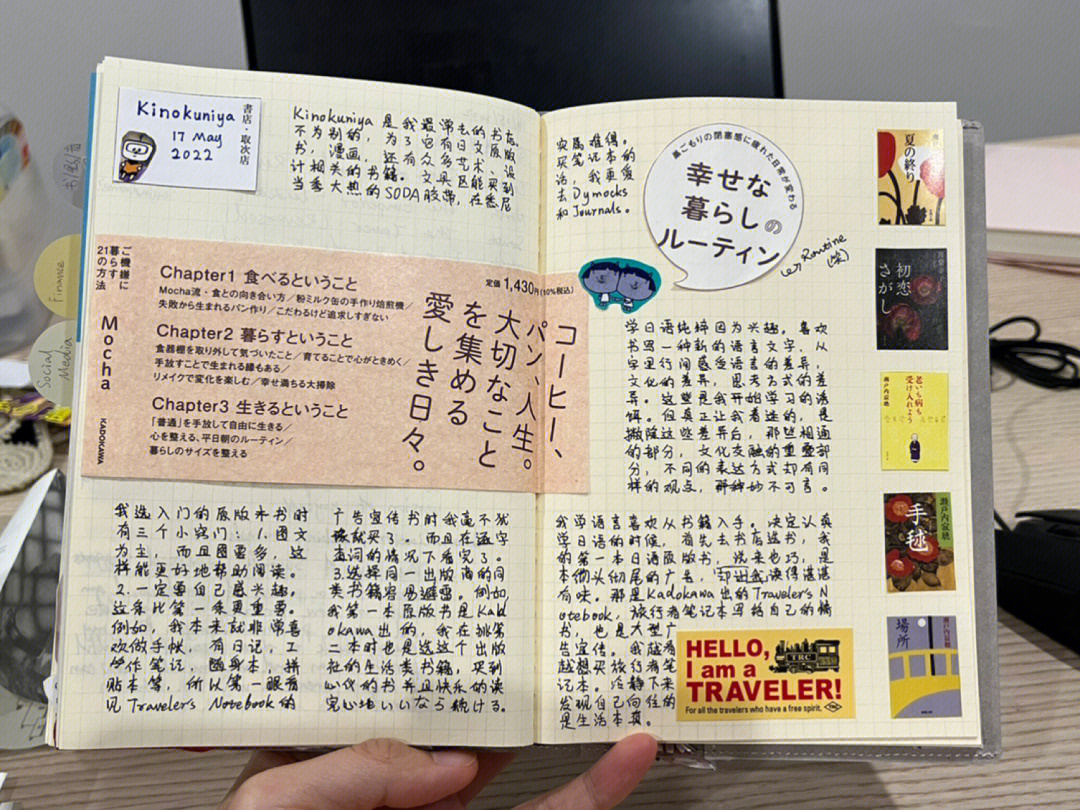 Kinokuniya
17 May
2022
書店・取次店
Kinokuniya 是我最常去的书店。
不为别的，为了它有日文原版
书，漫画，还有众多艺术、设
计相关的书籍。文具区能买到
当季大热的SODA胶带，在悉尼
ご機嫌に
暮らす
21の方法
Mocha
KADOKAWA
Chapter1 食べるということ
Mocha流・食との向き合い方／粉ミルク缶の手作り焙煎機／
失敗から生まれるパン作り／こだわるけど追求しすぎない
Chapter2 暮らすということ
食器棚を取り外して気づいたこと／育てることで心がときめく／
手放すことで生まれる縁もある／
リメイクで変化を楽しむ／幸せ満ちる大掃除
Chapter3 生きるということ
「普通」を手放して自由に生きる／
心を整える、平日朝のルーティン／
暮らしのサイズを整える
定価 1,430円(10%税込)
コーヒー、
パン、人生。
大切なこと
を集める
愛しき日々。
我选入门的原版书时
有三个小窍门：1.图文
为主，而且图要多，这
样能更好地帮助阅读。
2.一定要自己感兴趣。
这条比第一条更重要。
例如，我本来就非常喜
欢做手帐，有日记，工
作笔记，随身本，拼
贴本等，所以第一眼看
见Traveler's Notebook的
广告宣传书时我毫不犹
豫就买了。而且在逐字
查词的情况下看完了。
3.选择同一出版商的同
类书籍容易避雷。例如，
我第一本原版书是Kad
okawa出的，我在挑第
二本时也是选这个出版
社的生活类书籍，买到
心仪的书并且快乐的读
完心地いいなら続ける。
实属难得。
买笔记本的
话，我更爱
去Dymocks
和Journals。
巣ごもりの閉塞感に疲れた日常が変わる
幸せな
暮らしの
ルーティン
Routine
(笑)
学日语纯粹因为兴趣。喜欢
书写一种新的语言文字，从
字里行间感受语言的差异，
文化的差异，思考方式的差
异。这些是我开始学习的诱
饵。但真正让我着迷的，是
撇除这些差异后，那些相通
的部分，文化交融的重叠部
分，不同的表达方式却有同
样的观点，妙不可言。
我学语言喜欢从书籍入手。决定认真
学日语的时候，首先去书店选书，我
的第一本日语原版书，说来也巧，是
本彻头彻尾的广告，却让我读得津津
有味。那是Kadokawa出的Traveler's N
otebook，旅行者笔记本写给自己的情
书，也是大型广
告宣传。我越看
越想买旅行者笔
记本。冷静下来
发现自己向往的
是生活本真。
HELLO,
I am a
TRAVELER!
TRC
For all the travelers who have a free spirit.
TRC
夏の終り
初恋
さがし
老いも病も
受け入れよう
瀬戸内寂聴
瀬戸内寂聴
手毬
場所
Finance
Social
Media